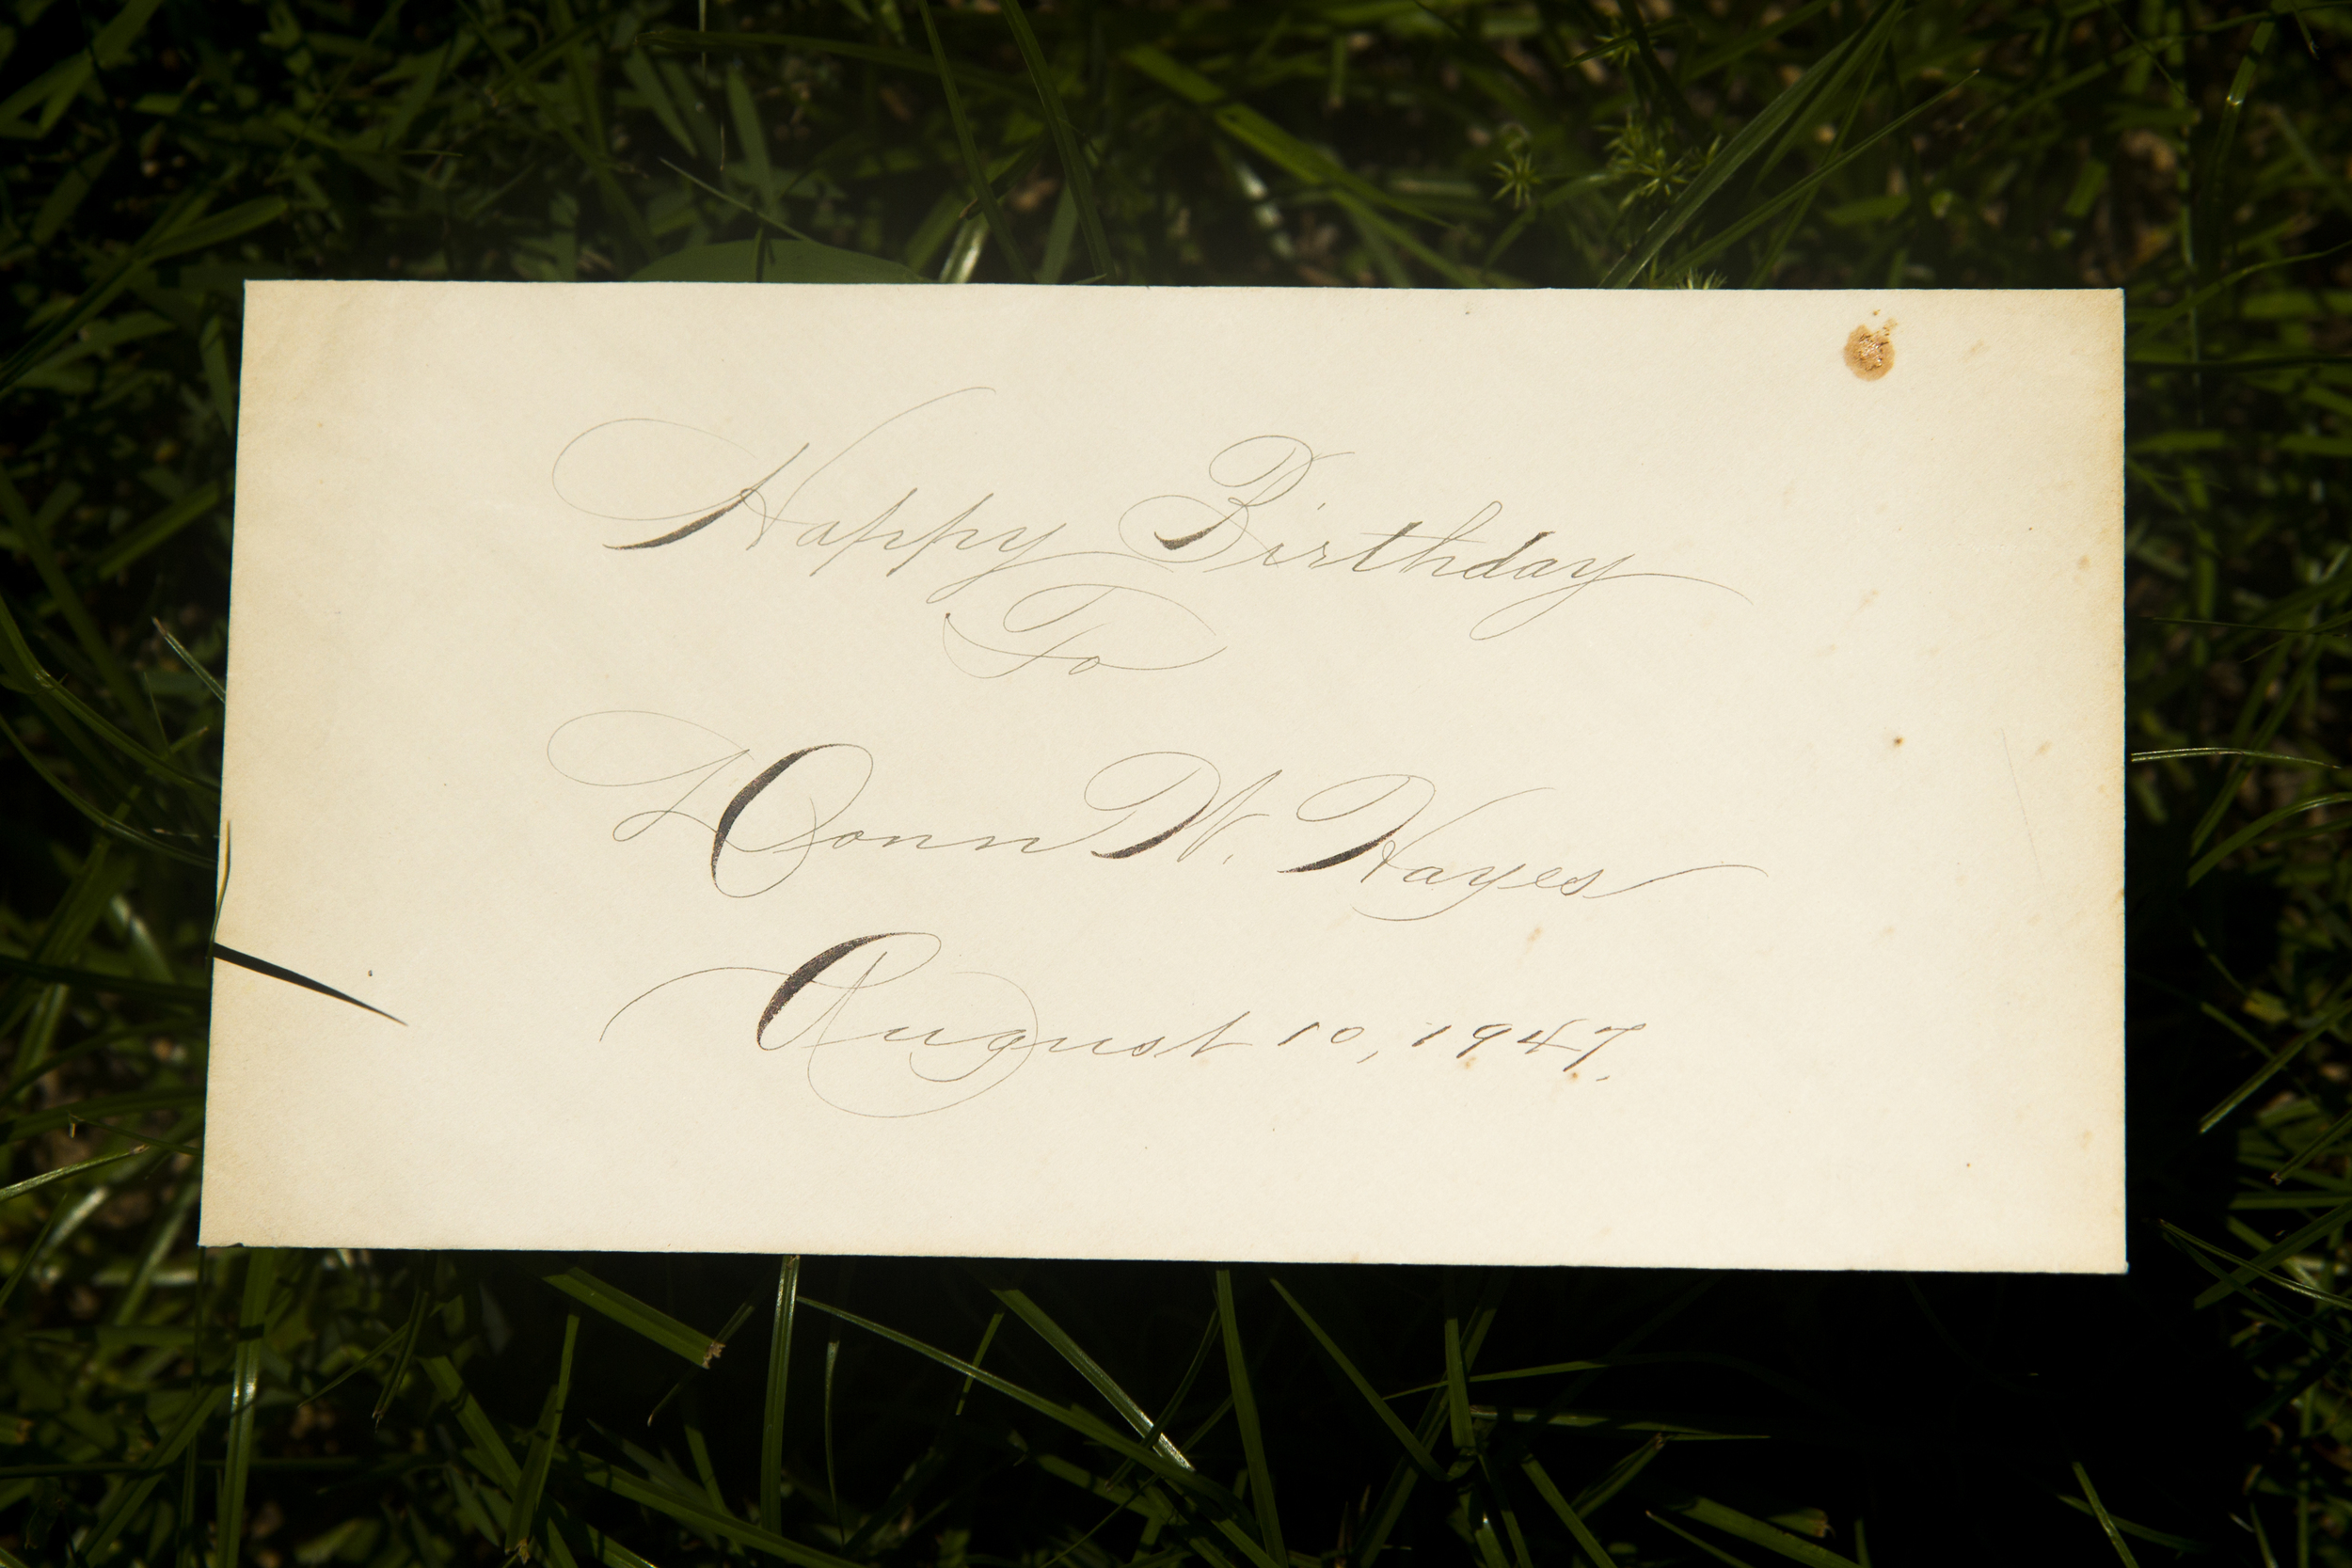 Happy Birthday
To
Donn W. Hayes
August 10, 1947.